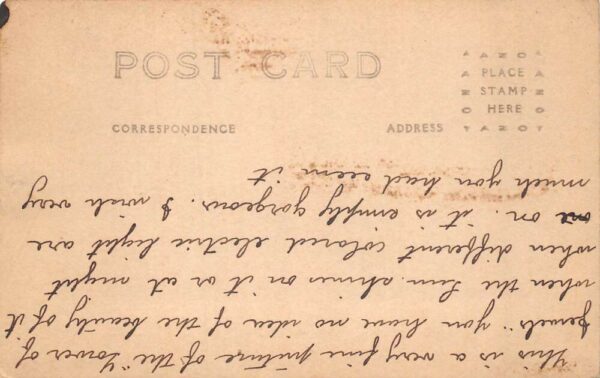 POST CARD
CORRESPONDENCE
ADDRESS
AZO
PLACE
STAMP
HERE
AZO
This is a very fine picture of the "Tower of
Jewels" you have no idea of the beauty of it
when the sun shines on it or at night
when different colored electric light are
on. it is simply gorgeous. I wish very
much you had seen it